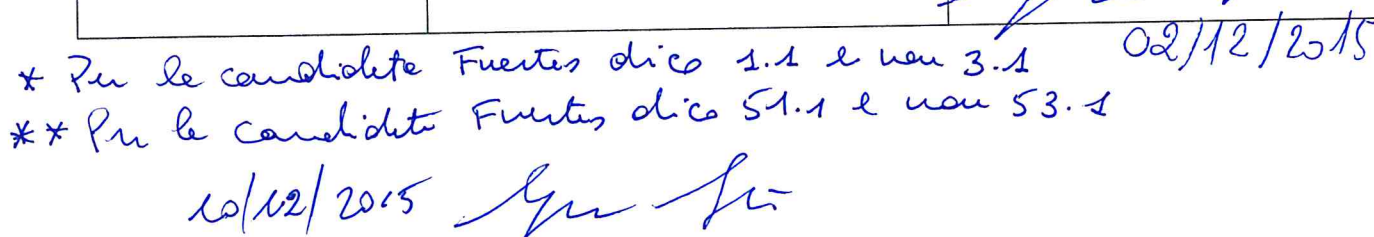 02/12/2015
* Per la candidata Fuertes dico 1.1 e non 3.1
** Per la candidata Fuertes dico 51.1 e non 53.1
10/12/2015